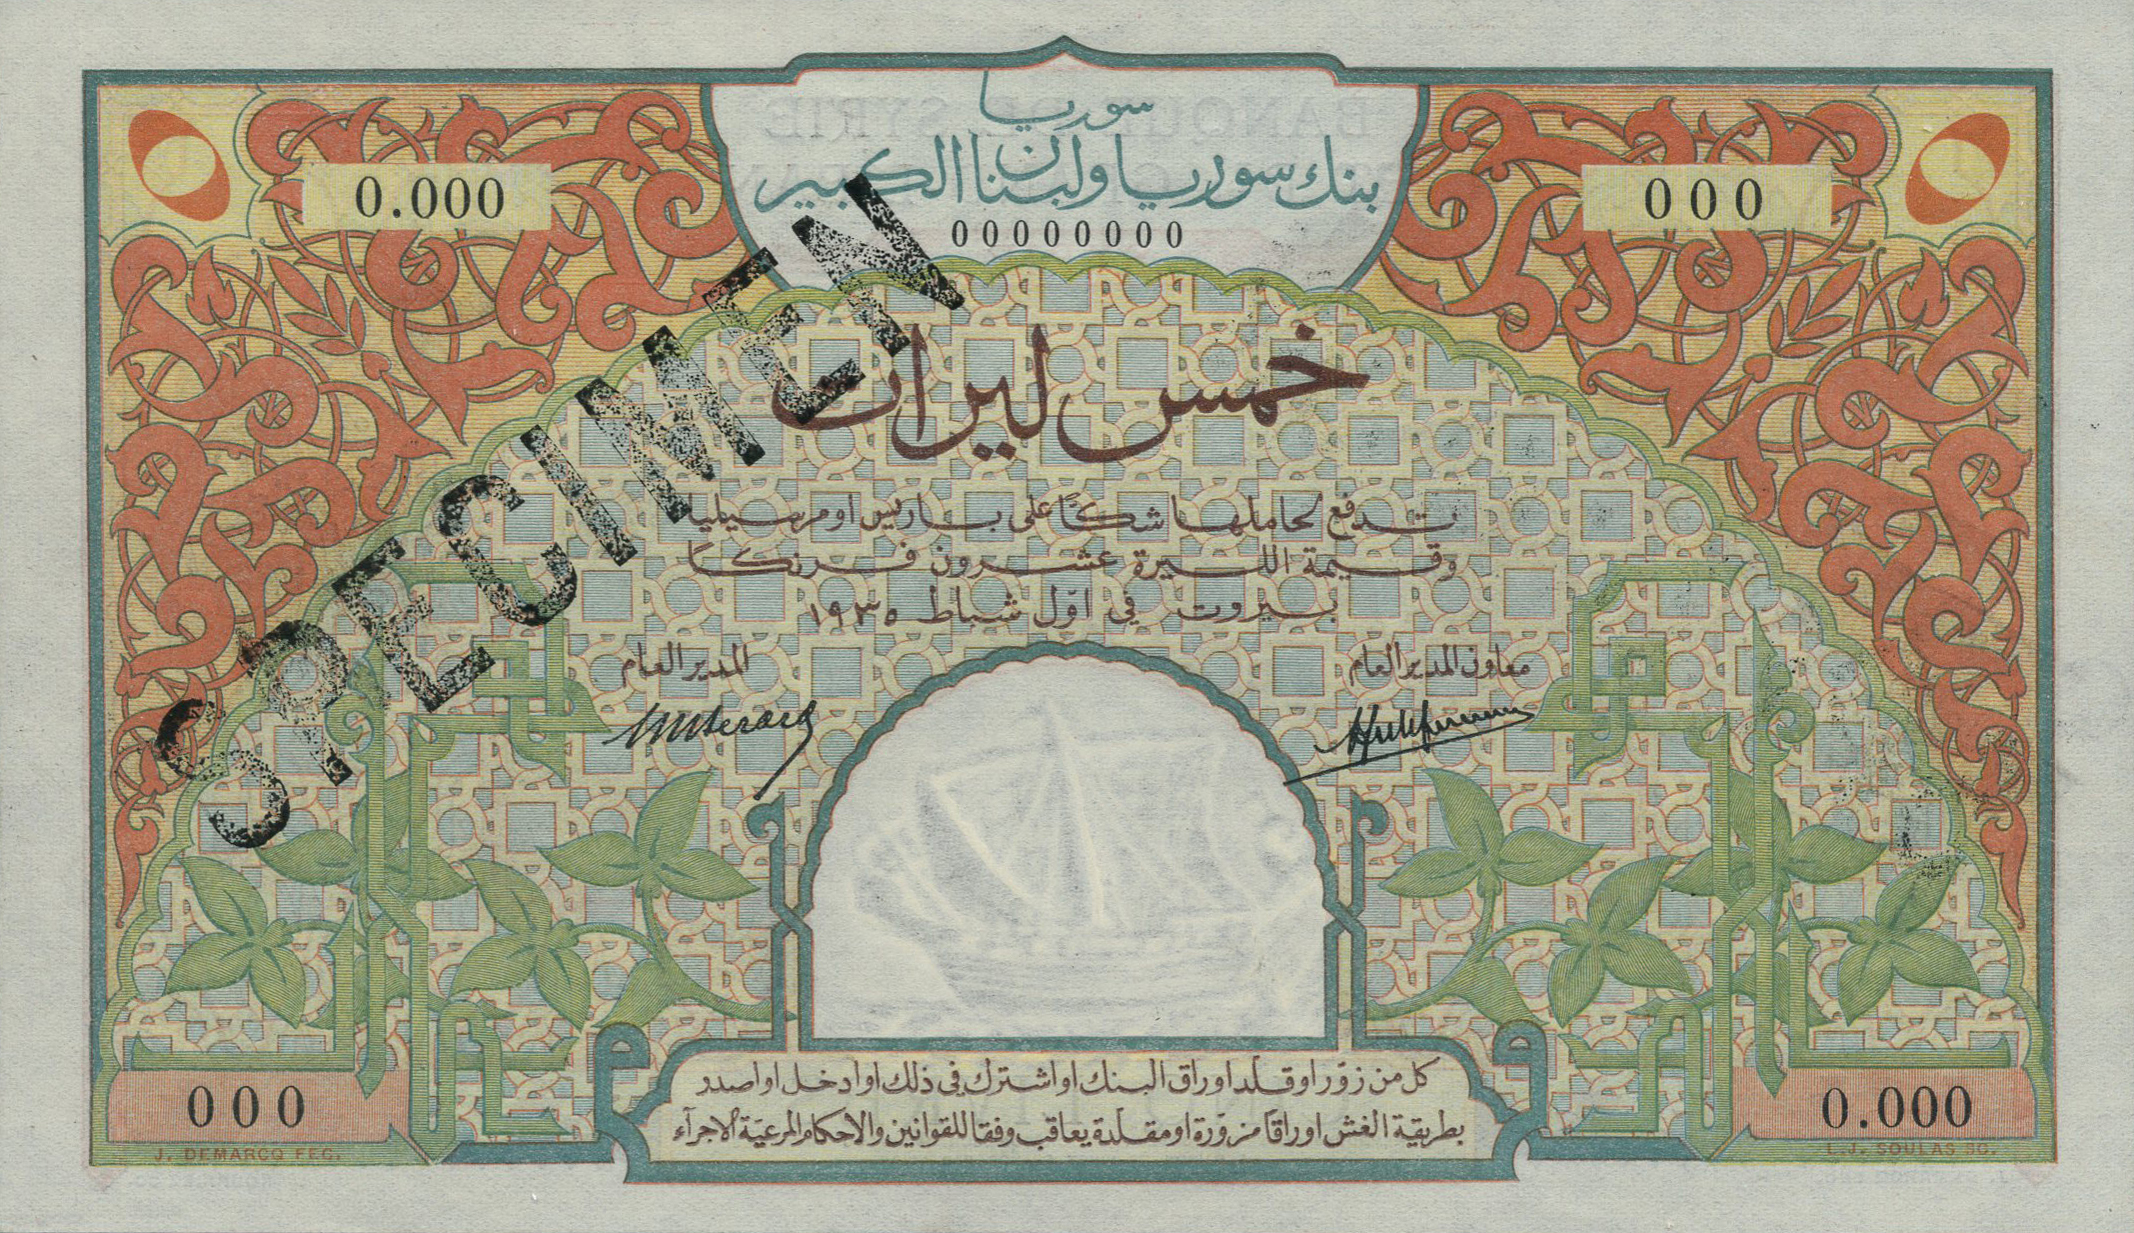 سوريا
بنك سوريا ولبنان الكبير
٥
٥
0.000
000
00000000
SPECIMEN
خمس ليرات
تدفع لحاملها شكًا على باريس او مرسيليا
وقيمة الليرة عشرون فرنكًا
بيروت في اوّل شباط ١٩٣٥
المدير العام
معاون المدير العام
كل من زوّر او قلّد اوراق البنك او اشترك في ذلك او ادخل او اصدر
بطريقة الغش اوراقًا مزوّرة او مقلّدة يعاقب وفقا للقوانين والاحكام المرعيّة الاجرآء
000
0.000
J. DEMARCQ FEC.
L.J. SOULAS SC.